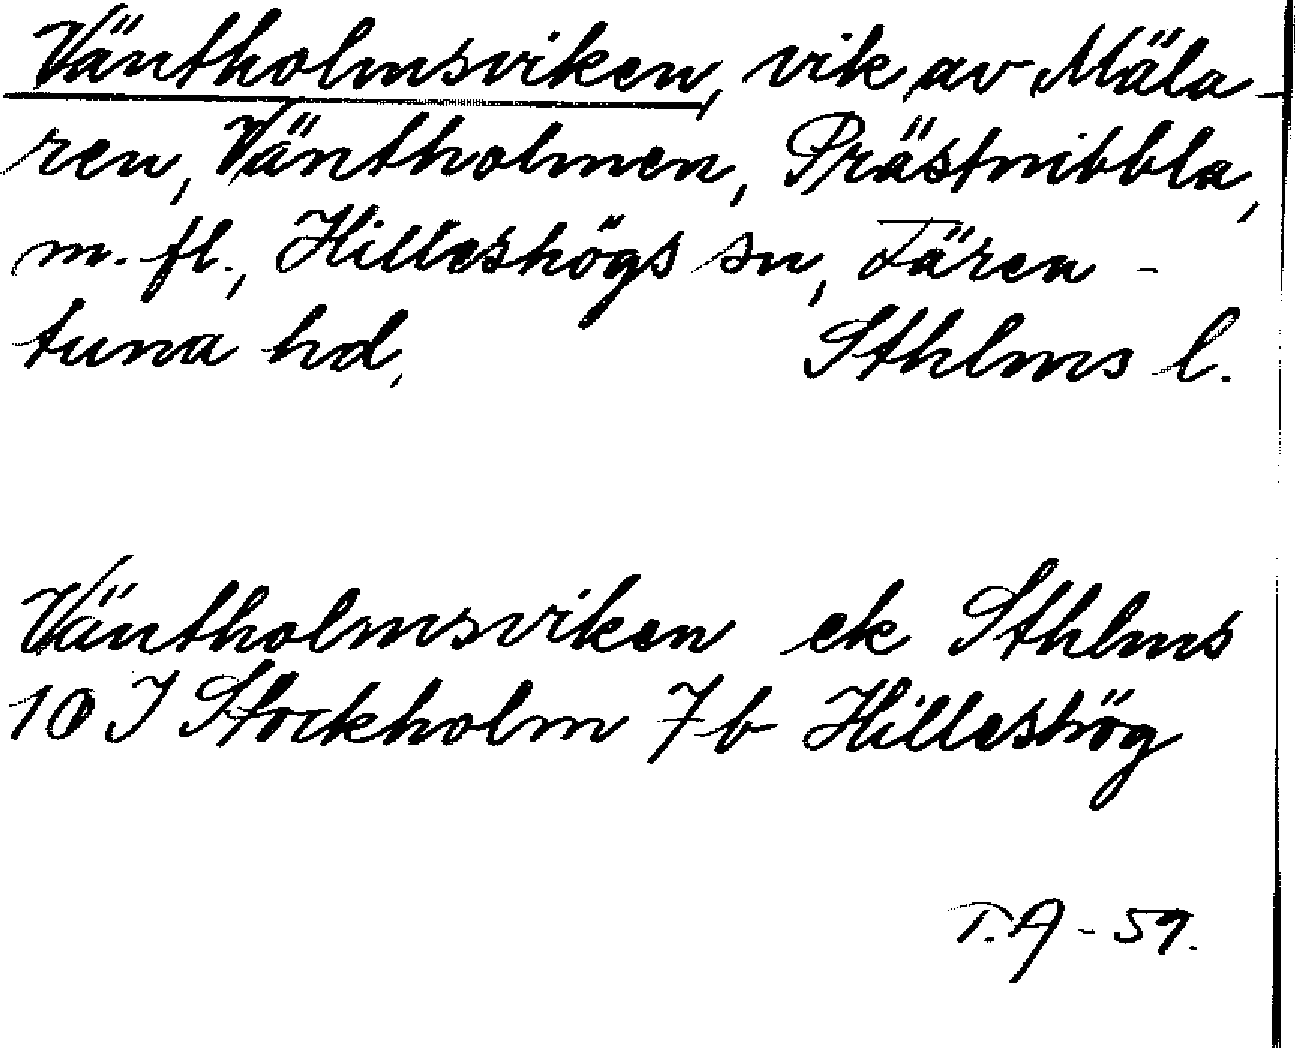 Väntholmsviken, vik av Mäla-
ren, Väntholmen, Prästnibbla,
m. fl., Hilleshögs sn, Fären-
tuna hd, Sthlms l.
Väntholmsviken ek Sthlms
10 I Stockholm 7b Hilleshög
T.A - 59.